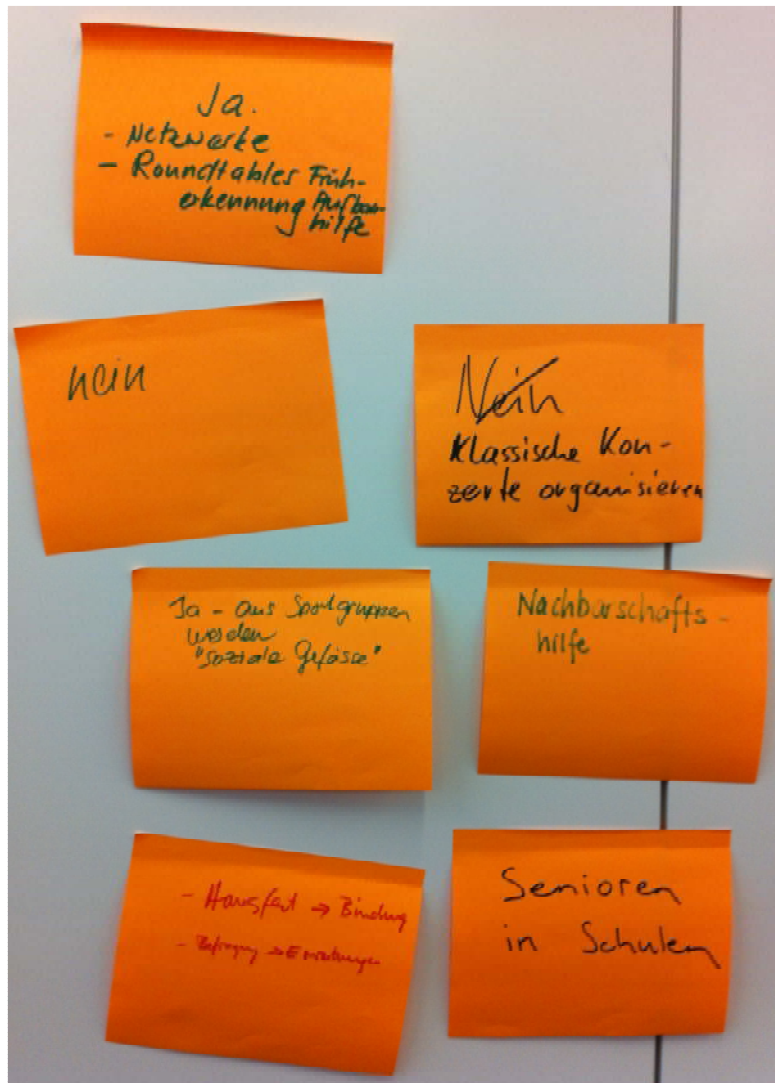 Ja.
- Netzwerke
- Roundtables Früh-
erkennung Aufbau-
hilfe
nein
Nein
Klassische Kon-
zerte organisieren
Ja - aus Sportgruppen
werden
"Soziale Gefässe"
Nachbarschafts-
hilfe
- Hausfest → Bindung
- Befragung → Erwartungen
Senioren
in Schulen